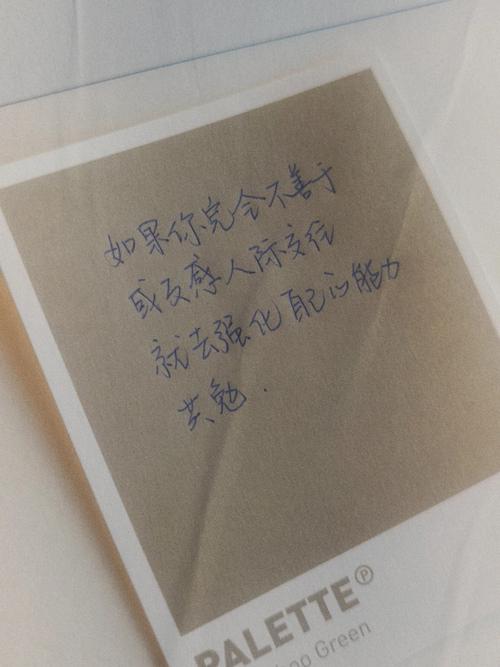 如果你完全不善于
或反感人际交往
就去强化配心能力
共勉.
PALETTE Ⓟ
Green